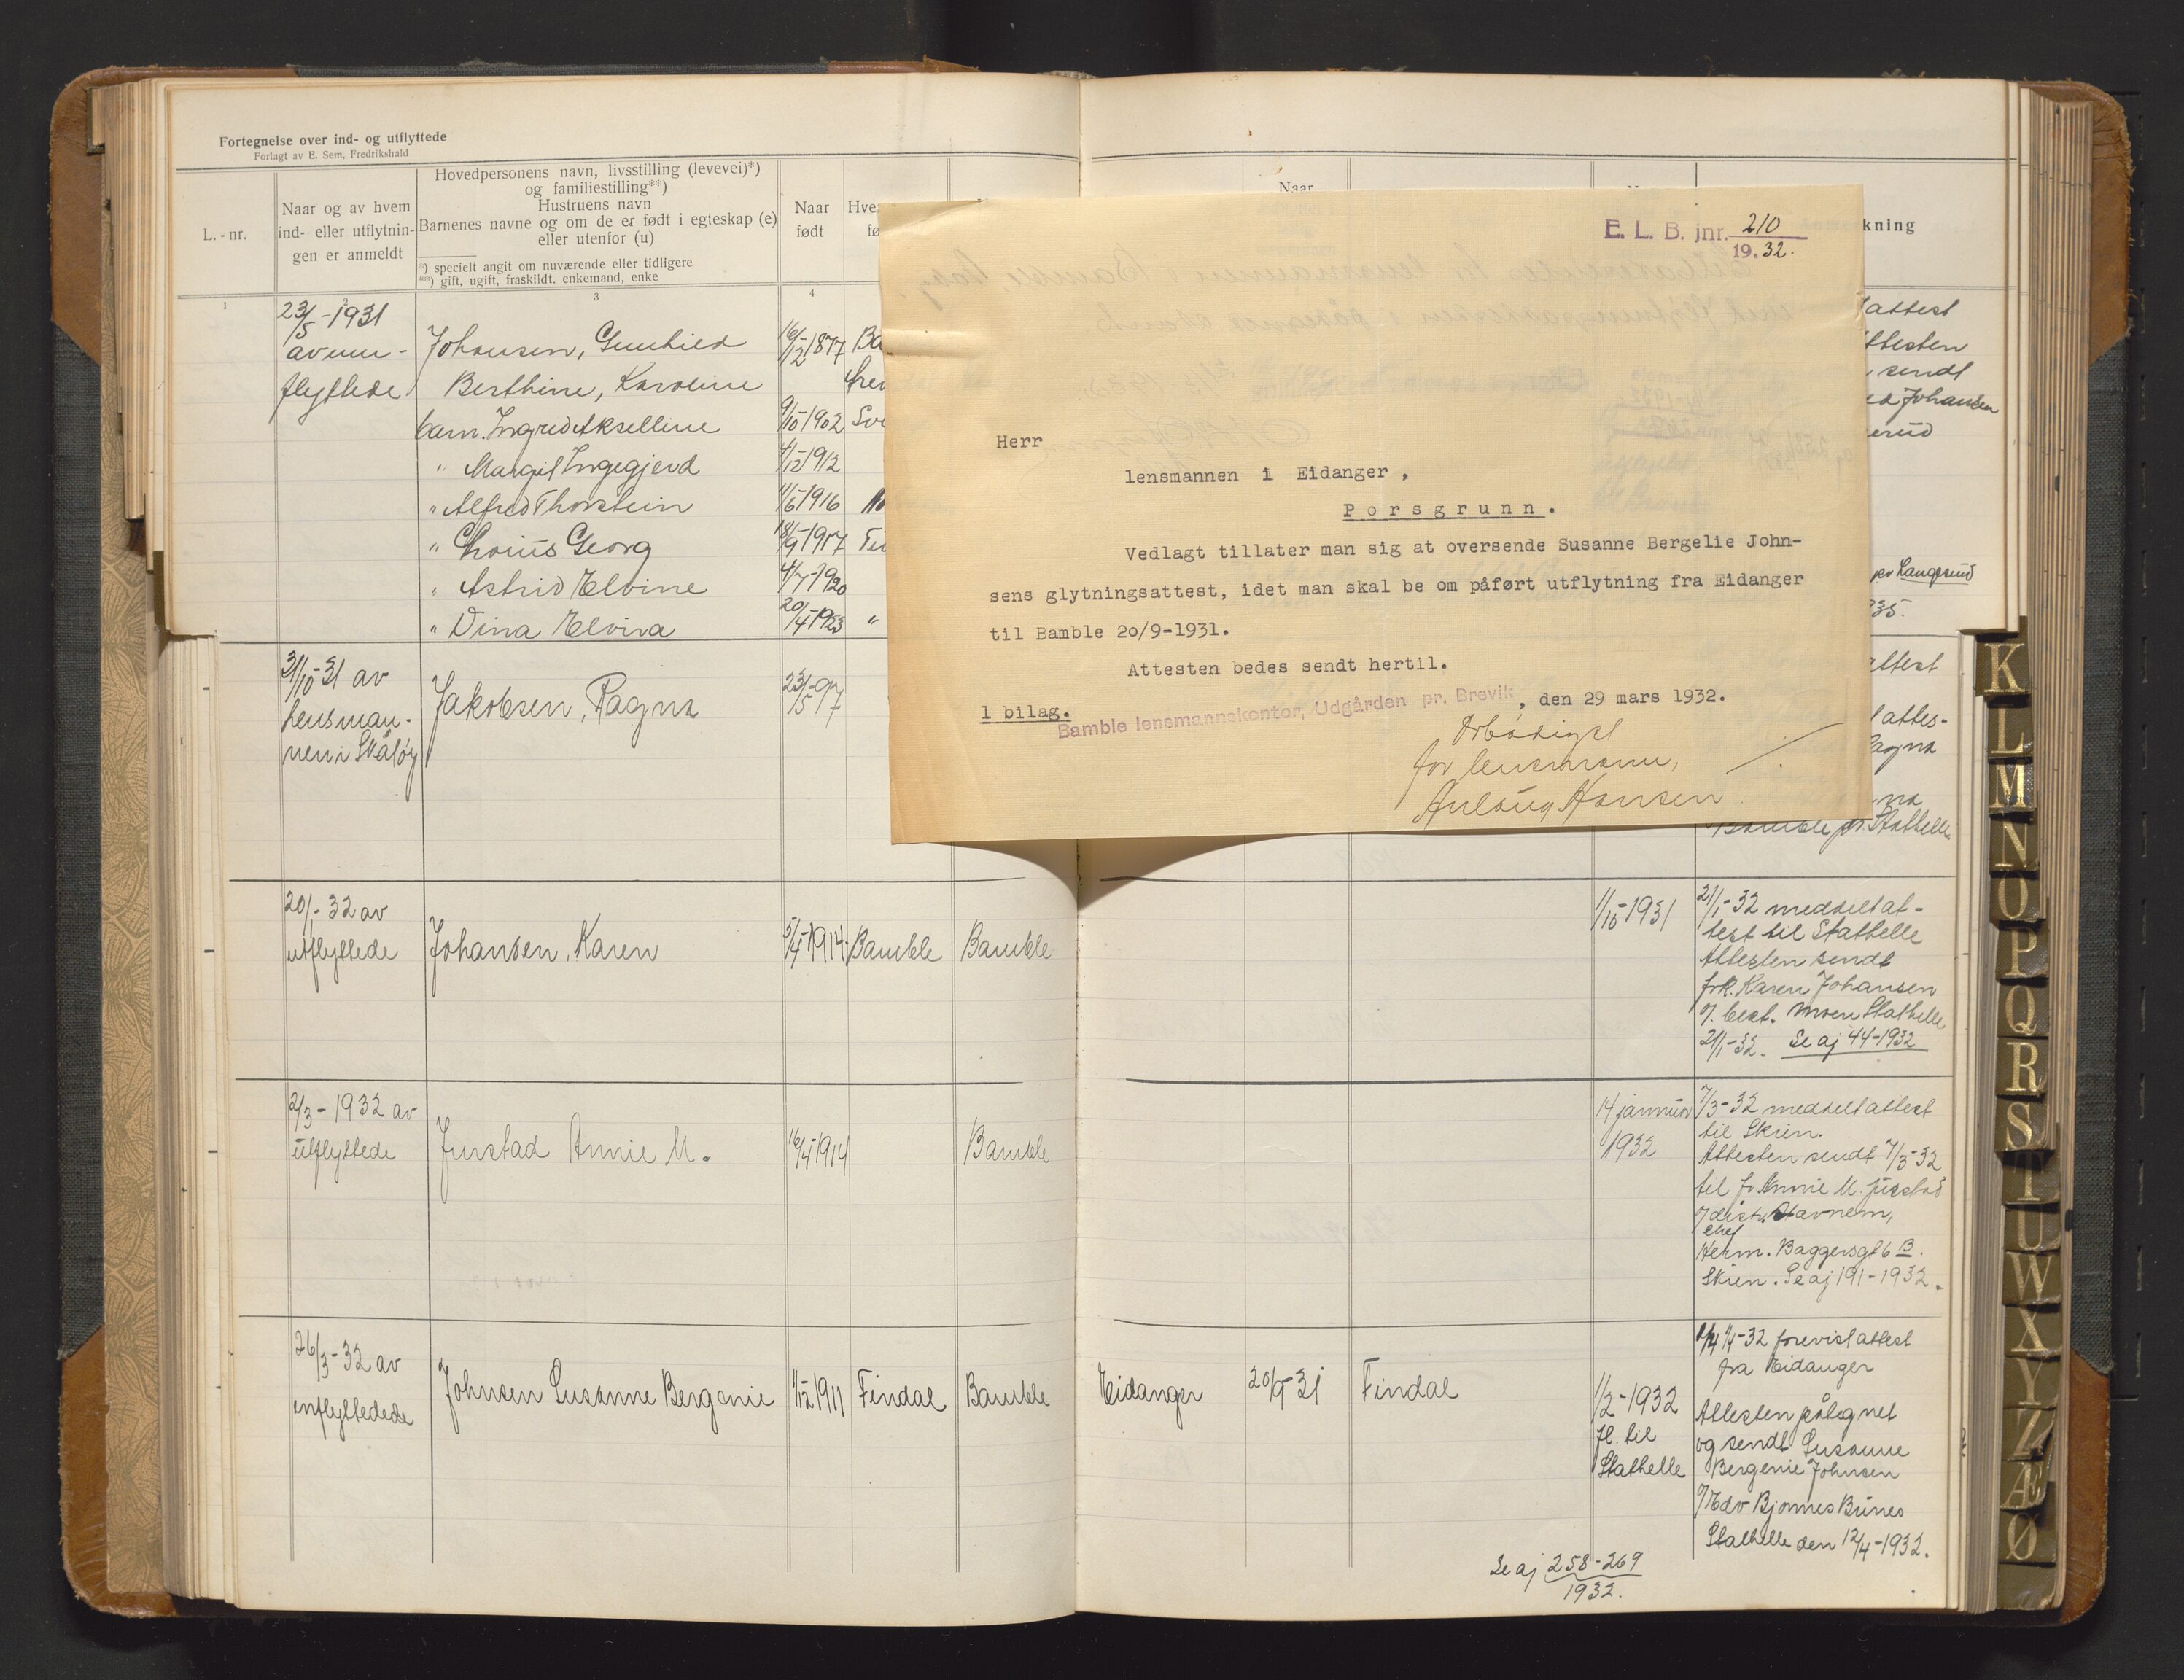 Fortegnelse over ind- og utflyttede
Forlagt av E. Sem, Fredrikshald
L.-nr.
Naar og av hvem
ind- eller utflytnin-
gen er anmeldt
Hovedpersonens navn, livsstilling (levevei)*)
og familiestilling**)
Hustruens navn
Barnenes navne og om de er født i egteskap (e)
eller utenfor (u)
*) specielt angit om nuværende eller tidligere
**) gift, ugift, fraskildt, enkemand, enke
Naar
født
Hve
fø
Naar
kning
1
2
3
4
23/5-1931
flyttede
Johansen, Gunhild
16/12 1877
Ba
Berthine, Karoline
barn. Ingrid Akselline
9/10-1902
" Margit Ingegjerd
4/12-1912
" Alfred Thorstein
11/6-1916
" Georg
18/9-1917
" Astrid Elvine
4/7-1920
" Dina Elvira
20/4-1923
"
attest
ttesten
sendt
Johansen
erud
pr Langesund
935.
E. L. B. jnr. 210
19.32.
Herr
lensmannen i Eidanger,
Porsgrunn.
Vedlagt tillater man sig at oversende Susanne Bergelie John-
sens glytningsattest, idet man skal be om påført utflytning fra Eidanger
til Bamble 20/9-1931.
Attesten bedes sendt hertil.
1 bilag.
Bamble lensmannskontor, Udgården pr. Brevik, den 29 mars 1932.
Ærbødigst
for lensmann,
Anlaug Hansen
31/10-31 av
lensman-
nen i Skåtøy
Jakobsen, Ragna
23/5-97
attest
attes-
Ragna
na
Bamble pr. Stathelle
20/1-32 av
utflyttede
Johansen, Karen
5/4-1914
Bamble
Bamble
1/10-1931
21/1-32 meddelt at-
test til Stathelle
Attesten sendt
frk. Karen Johansen
Moen Stathelle
21/1-32. Se aj 44-1932
2/3-1932 av
utflyttede
Justad Annie M.
16/4-1914
Bamble
14 januar
1932
7/3-32 meddelt attest
til Skien.
Attesten sendt 7/3-32
til fr Annie M. Justad
Stavnem,
Herm. Baggersgt 6 B.
Skien. Se aj 191-1932.
26/3-32 av
innflyttedede
Johnsen Susanne Bergenie
1/12 1911
Findal
Bamble
Eidanger
20/9-31
Findal
1/2-1932
fl. til
Stathelle
1/4-32 forevist attest
fra Eidanger
Attesten påtegnet
og sendt Susanne
Bergenie Johnsen
Edv Bjønnes Bunes
Stathelle den 12/4-1932.
Se aj 258-269
1932.
K
L
M
N
O
P
Q
R
S
T
U
W
X
Y
Z
Æ
Ø